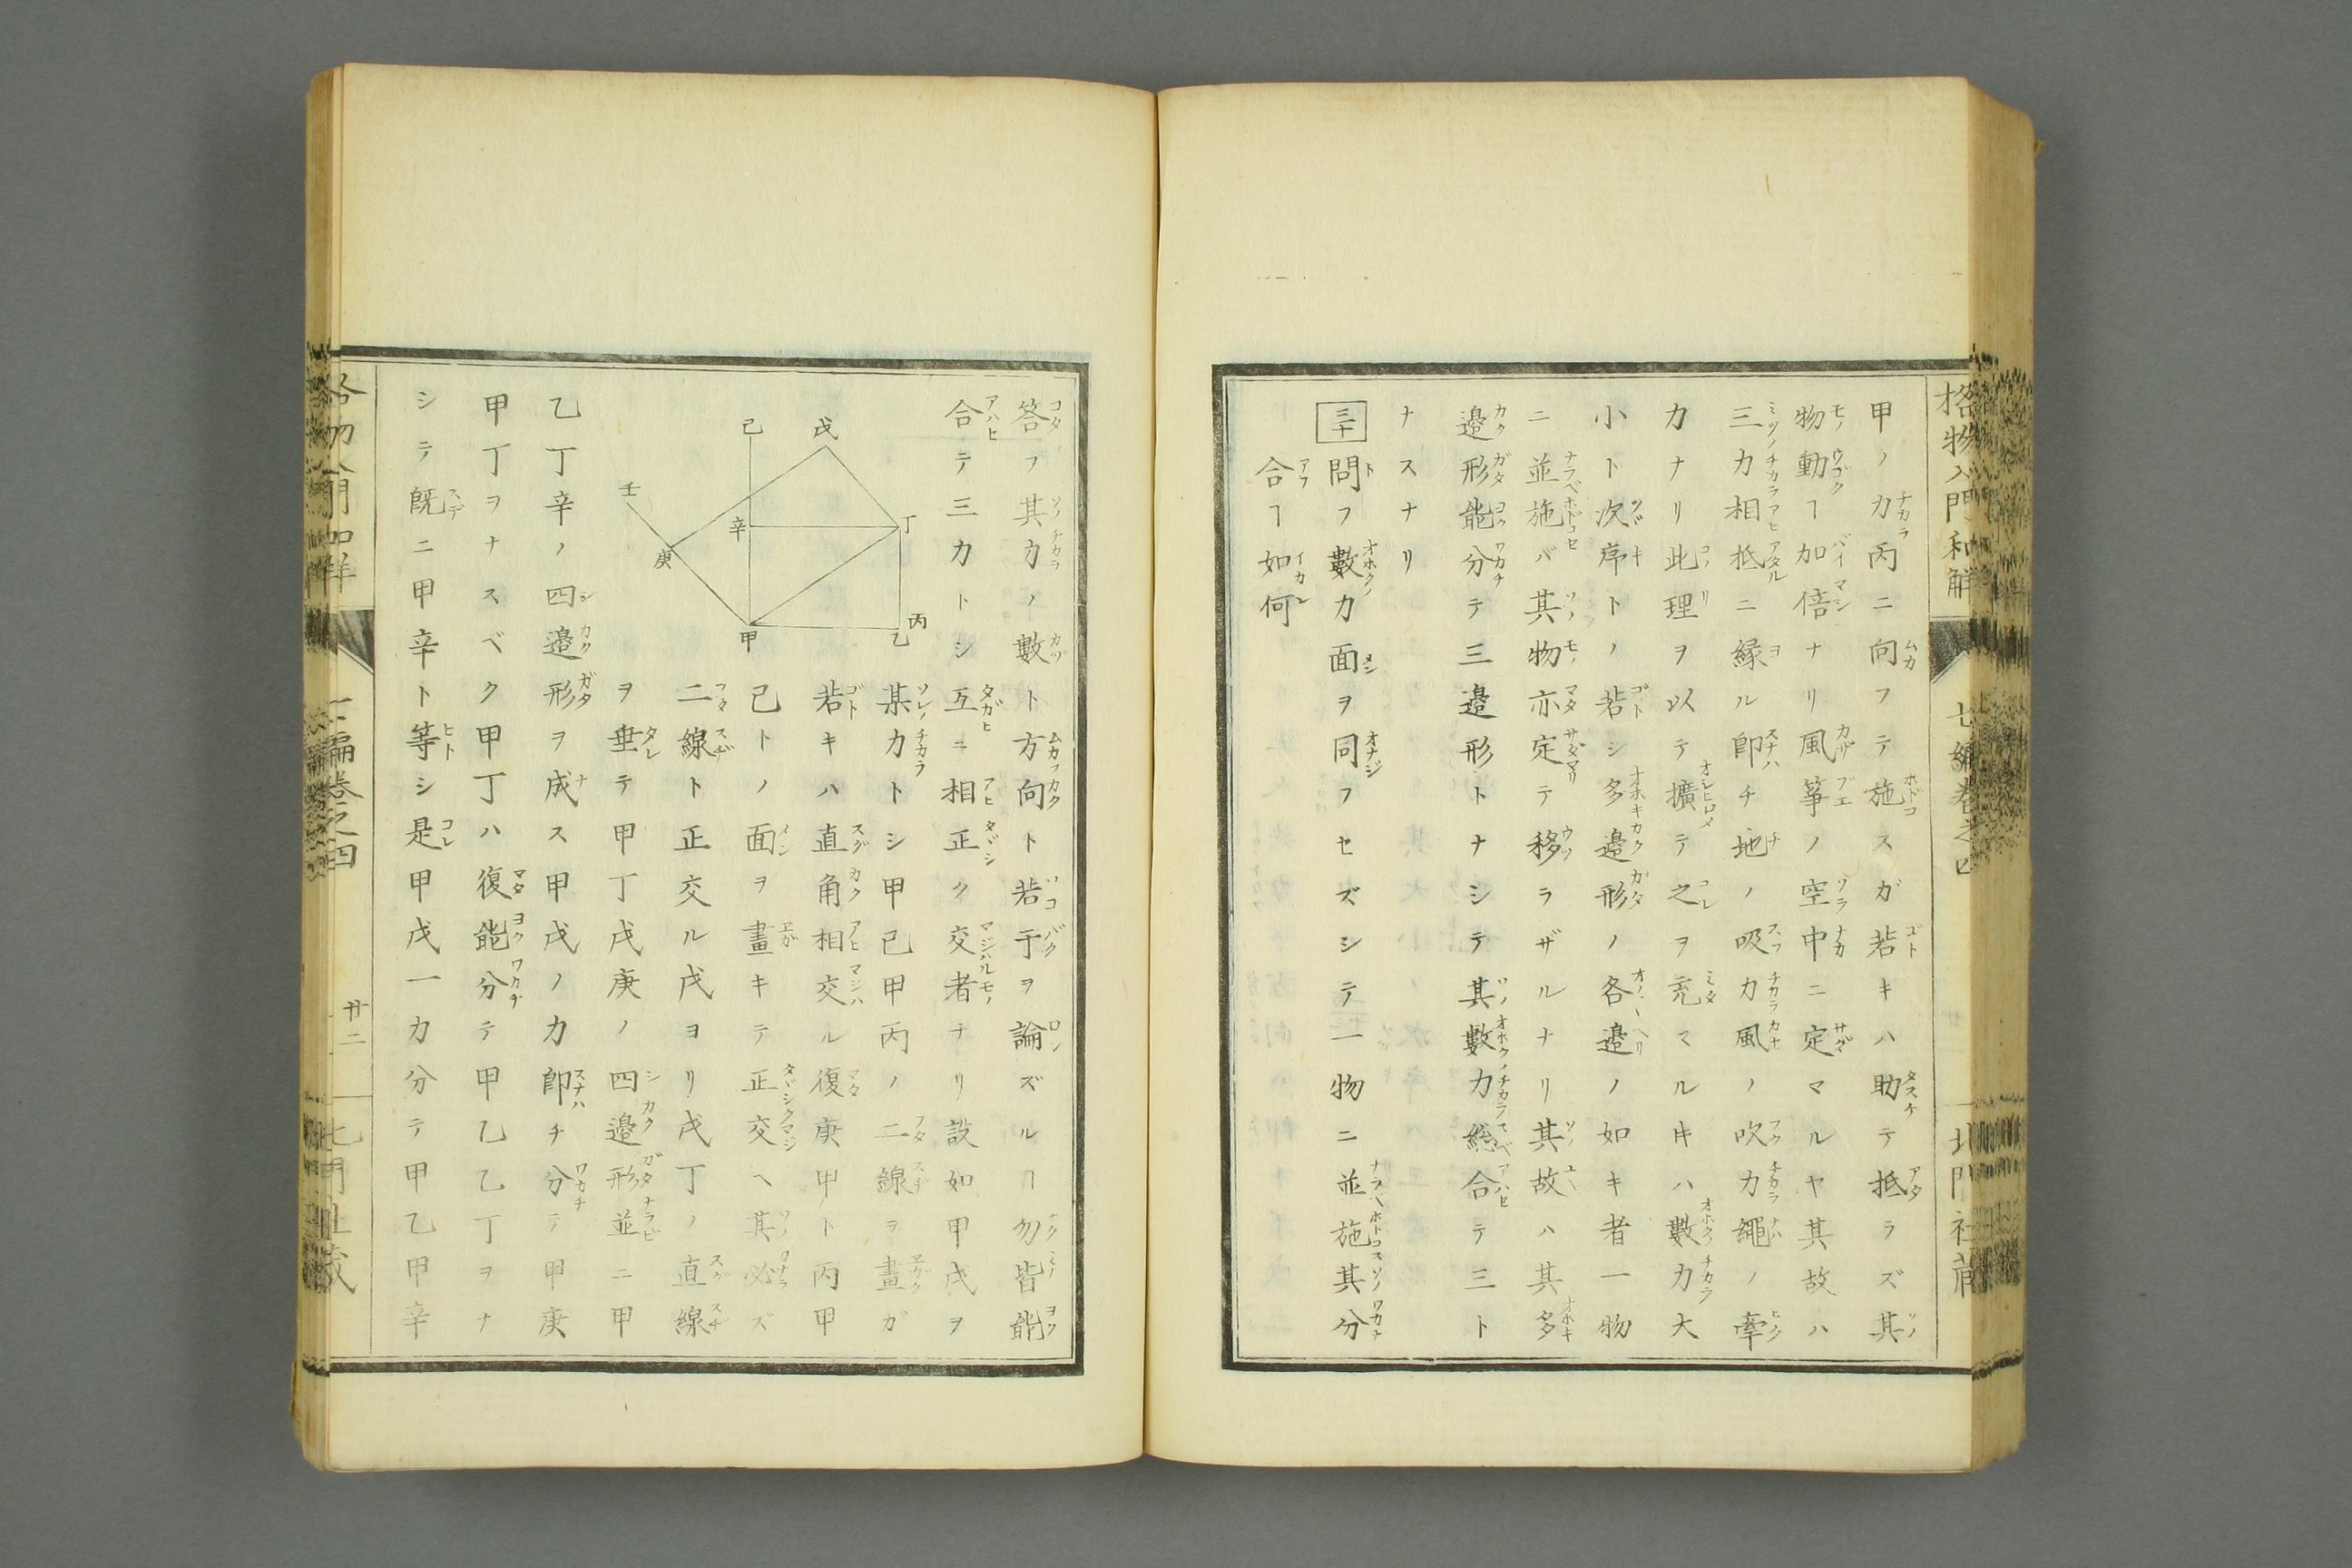 格物入門和解
七編巻之四
北門社蔵
甲ノ力丙ニ向フテ施スガ若キハ助テ抵ラズ其
物動ヿ加倍ナリ風箏ノ空中ニ定マルヤ其故ハ
三力相抵ニ縁ル即チ地ノ吸力風ノ吹力繩ノ牽
力ナリ此理ヲ以テ擴テ之ヲ充マル𪜈ハ數力大
小ト次序トノ若シ多邉形ノ各邉ノ如キ者一物
ニ並施バ其物亦定テ移ラザルナリ其故ハ其多
邉形能分テ三邉形トナシテ其數力総合テ三ト
ナスナリ
三十 問フ數力面ヲ同フセズシテ一物ニ並施其分
合ヿ如何
答フ其力ノ數ト方向ト若于ヲ論ズルヿ勿皆能
合テ三力トシ互ニ相正ク交者ナリ設如甲戊ヲ
某力トシ甲己甲丙ノ二線ヲ畫ガ
若キハ直角相交ル復庚甲ト丙甲
己トノ面ヲ畫キテ正交ヘ其必ズ
二線ト正交ル戊ヨリ戊丁ノ直線
ヲ垂テ甲丁戊庚ノ四邉形並ニ甲
己
戊
壬
辛
丁
庚
丙
甲
乙
乙丁辛ノ四邉形ヲ成ス甲戊ノ力即チ分テ甲庚
甲丁ヲナスベク甲丁ハ復能分テ甲乙乙丁ヲナ
シテ既ニ甲辛ト等シ是甲戊一力分テ甲乙甲辛
廿二